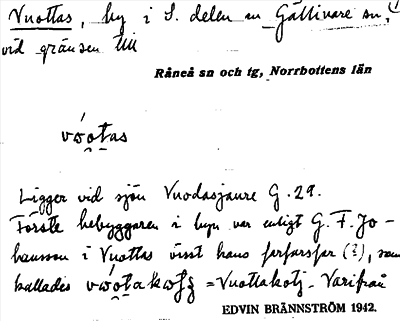 Vuottas, by i S. delen av Gällivare sn,
vid gränsen till
Råneå sn och tg, Norrbottens län
vωotas
Ligger vid sjön Vuodasjaure G. 29.
Förste bebyggaren i byn var enligt G. F. Jo-
hansson i Vuottas visst hans farfarsfar (?), som
kallades = Vuottakotj - Varifrån
EDVIN BRÄNNSTRÖM 1942.